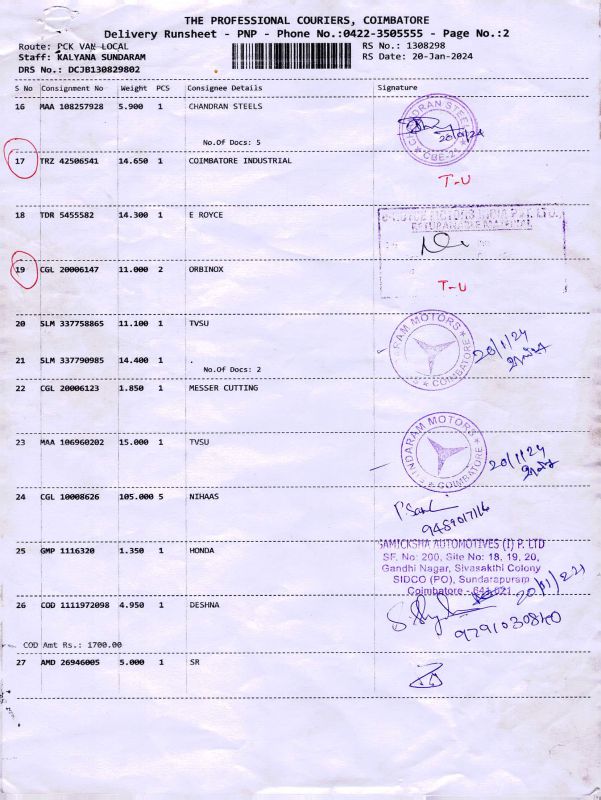 THE PROFESSIONAL COURIERS, COIMBATORE
Delivery Runsheet - PNP - Phone No.:0422-3505555 - Page No.:2
Route: PCK VAN LOCAL RS No.: 1308298
Staff: KALYANA SUNDARAM RS Date: 20-Jan-2024
DRS No.: DCJB130829802
S No Consignment No Weight PCS Consignee Details Signature
16 MAA 108257928 5.900 1 CHANDRAN STEELS
CHANDRAN STEEL
20/1/24
CBE-2
No.Of Docs: 5
17 TRZ 42506541 14.650 1 COIMBATORE INDUSTRIAL
T-U
18 TDR 5455582 14.300 1 E ROYCE
MOTORS INDIA PVT. LTD.
RETURNABLE MATERIAL
19 CGL 20006147 11.000 2 ORBINOX
T-U
20 SLM 337758865 11.100 1 TVSU
RAM MOTORS
COIMBATORE
20/1/24
21 SLM 337790985 14.400 1 .
No.Of Docs: 2
22 CGL 20006123 1.850 1 MESSER CUTTING
23 MAA 106960202 15.000 1 TVSU
NDARAM MOTORS
COIMBATORE
20/1/24
24 CGL 10008626 105.000 5 NIHAAS
9489017116
25 GMP 1116320 1.350 1 HONDA
SAMICKSHA AUTOMOTIVES (I) P. LTD
SF. No: 200, Site No: 18, 19, 20,
Gandhi Nagar, Sivasakthi Colony
SIDCO (PO), Sundarapuram
Coimbatore - 641 021
26 COD 1111972098 4.950 1 DESHNA
9791030840
COD Amt Rs.: 1700.00
27 AMD 26946005 5.000 1 SR